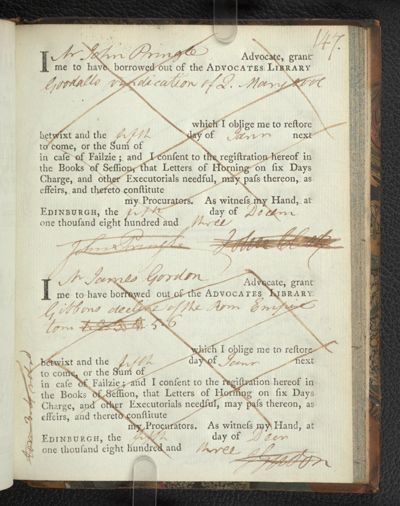 147.
I Mr John Pringle Advocate, grant
me to have borrowed out of the ADVOCATES LIBRARY
Goodalls vindication of Q. Mary
which I oblige me to reſtore
betwixt and the fifth day of Janr next
to come, or the Sum of
in caſe of Failzie; and I conſent to the regiſtration hereof in
the Books of Seſſion, that Letters of Horning on ſix Days
Charge, and other Executorials needful, may paſs thereon, as
effeirs, and thereto conſtitute
my Procurators. As witneſs my Hand, at
EDINBURGH, the fifth day of Decem
one thouſand eight hundred and three
John Pringle John Clerk
I Mr James Gordon Advocate, grant
me to have borrowed out of the ADVOCATES LIBRARY
Gibbons decline of the Rom Empire
tom 5 6
which I oblige me to reſtore
betwixt and the fifth day of Janr next
to come, or the Sum of
in caſe of Failzie; and I conſent to the regiſtration hereof in
the Books of Seſſion, that Letters of Horning on ſix Days
Charge, and other Executorials needful, may paſs thereon, as
effeirs, and thereto conſtitute
my Procurators. As witneſs my Hand, at
EDINBURGH, the fifth day of Decr
one thouſand eight hundred and three